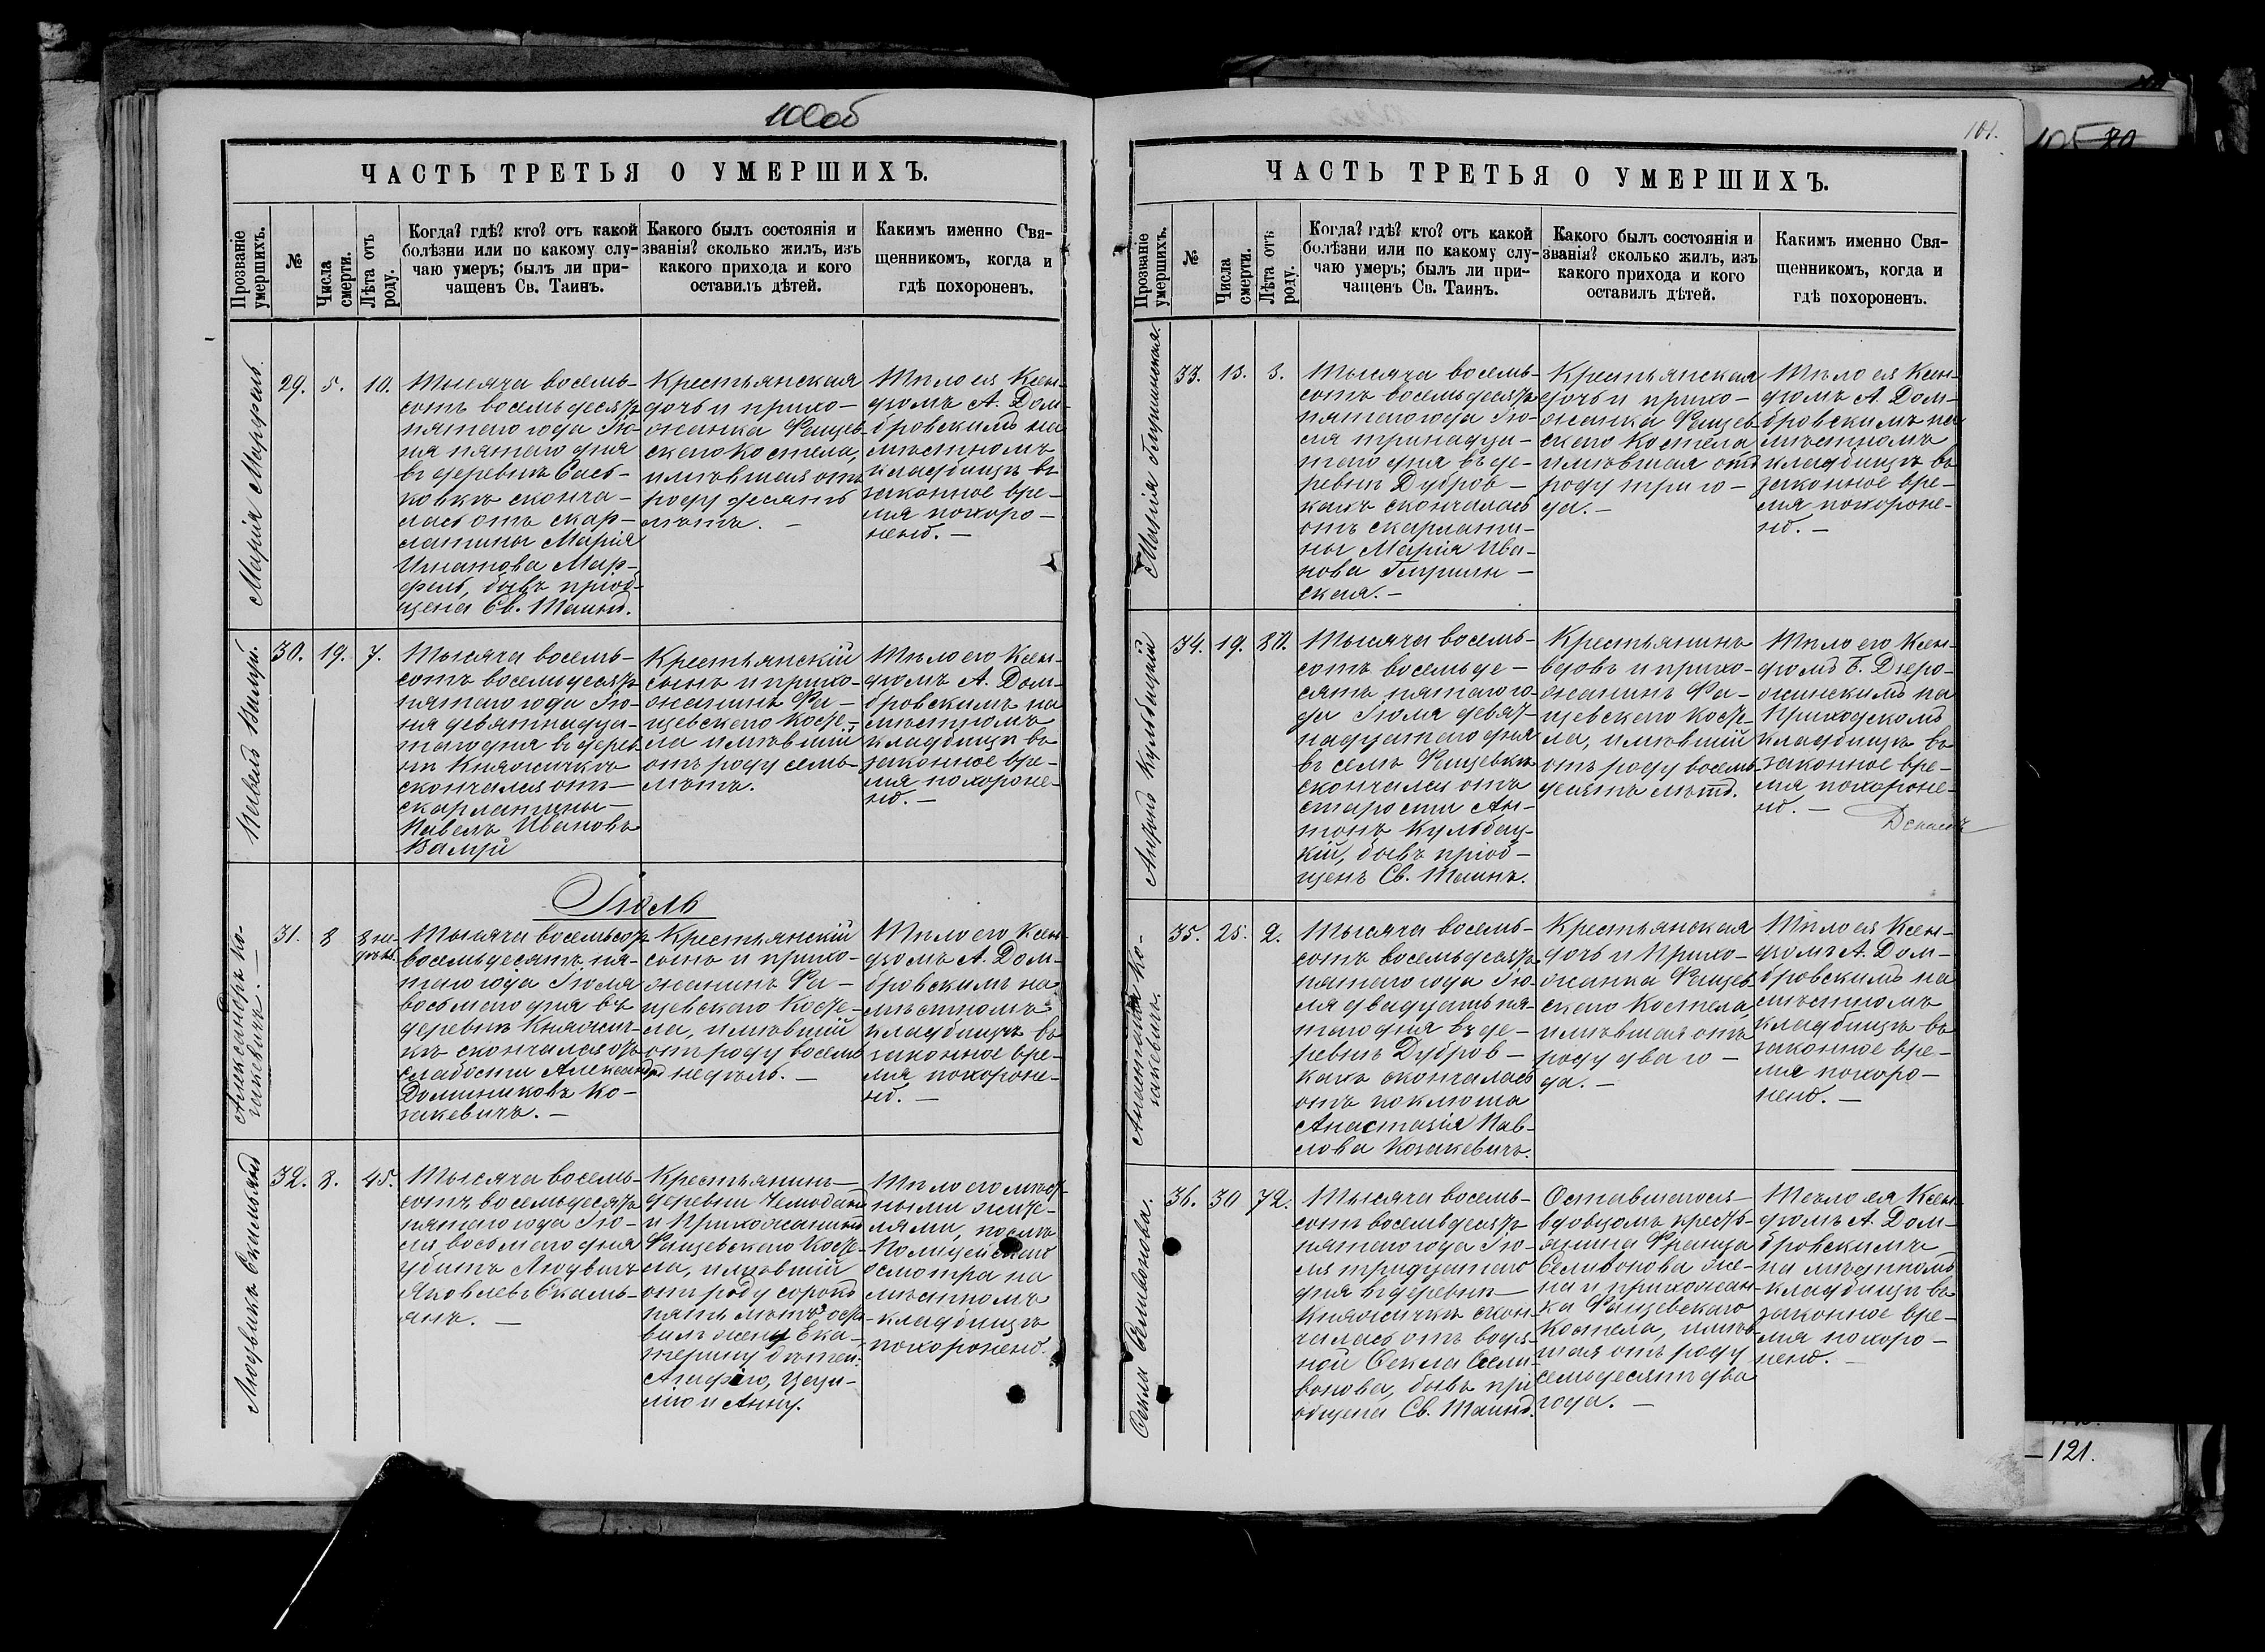 100об
ЧАСТЬ ТРЕТЬЯ О УМЕРШИХЪ.
Прозваніе умершихъ.
№
Числа смерти.
Лѣта отъ роду.
Когда? гдѣ? кто? отъ какой
болѣзни или по какому слу-
чаю умеръ; былъ ли при-
чащенъ Св. Таинъ.
Какого былъ состоянія и
званія? сколько жилъ, изъ
какого прихода и кого
оставилъ дѣтей.
Какимъ именно Свя-
щенникомъ, когда и
гдѣ похороненъ.
Марія
29.
5.
10.
Тысяча восемь-
сотъ восемьдесятъ
пятаго года Iю-
ня пятаго дня
въ деревнѣ
сконча-
лась отъ скар-
латины Марія
Игнатова Мар-
фель, бывъ пріоб-
щена Св. Таинъ.
Крестьянская
дочь и прихо-
жанка Фащев-
скаго Костела,
имѣвшая отъ
роду десять
лѣтъ. –
Тѣло ея Ксен-
дзомъ А. Дом-
бровскимъ на
мѣстномъ
кладбищѣ въ
законное вре-
мя похоро-
нено. –
Павелъ Валуй.
30.
19.
7.
Тысяча восемь-
сотъ восемьдесятъ
пятаго года Iю-
ня девятнадца-
таго дня въ дерев-
нѣ Княжичкѣ
скончался отъ
скарлатины
Павелъ Ивановъ
Валуй
Крестьянскій
сынъ и прихо-
жанинъ Фа-
щевскаго Косте-
ла имѣвшій
отъ роду семь
лѣтъ.
Тѣло его Ксен-
дзомъ А. Дом-
бровскимъ на
мѣстномъ
кладбищѣ въ
законное вре-
мя похороне-
но. –
Iюль
Александеръ Ко-
закевичъ. –
31.
8
8 не-
дѣль.
Тысяча восемьсотъ
восемьдесятъ пя-
таго года Iюля
восьмаго дня въ
деревнѣ Княжич-
кѣ скончался отъ
слабости Александръ
Доминиковъ Ко-
закевичъ. –
Крестьянскій
сынъ и прихо-
жанинъ Фа-
щевскаго Косте-
ла, имѣвшій
отъ роду восемь
недѣль. –
Тѣло его Ксен-
дзомъ А. Дом-
бровскимъ на
мѣстномъ
кладбищѣ въ
законное вре-
мя похороне-
но. –
Людвикъ Скамьянъ
32.
8.
45.
Тысяча восемь-
сотъ восемьдесятъ
пятаго года Iю-
ля восьмаго дня
убитъ Людвигъ
Яковлевъ Скамь-
янъ. –
Крестьянинъ
деревни Чемоданъ
и Прихожанинъ
Фащевскаго Косте-
ла, имѣвшій
отъ роду сорокъ
пять лѣтъ оста-
вилъ жену Ека-
терину дѣтей:
Агафію, Цеци-
лію и Анну.
Тѣло его мѣст-
ными жите-
лями, послѣ
Полицейскаго
осмотра на
мѣстномъ
кладбищѣ
похоронено.
101.
ЧАСТЬ ТРЕТЬЯ О УМЕРШИХЪ.
Прозваніе умершихъ.
№
Числа смерти.
Лѣта отъ роду.
Когда? гдѣ? кто? отъ какой
болѣзни или по какому слу-
чаю умеръ; былъ ли при-
чащенъ Св. Таинъ.
Какого былъ состоянія и
званія? сколько жилъ, изъ
какого прихода и кого
оставилъ дѣтей.
Какимъ именно Свя-
щенникомъ, когда и
гдѣ похороненъ.
Марія Глушинская.
33.
13.
3.
Тысяча восемь-
сотъ восемьдесятъ
пятаго года Iю-
ля тринадца-
таго дня въ де-
ревнѣ Дубров-
кахъ скончалась
отъ скарлати-
ны Марія Ива-
нова Глушин-
ская. –
Крестьянская
дочь и прихо-
жанка Фащев-
скаго Костела
имѣвшая отъ
роду три го-
да. –
Тѣло ея Ксен-
дзомъ А. Дом-
бровскимъ на
мѣстномъ
кладбищѣ въ
законное вре-
мя похороне-
но. –
Антонъ Кульбацкій
34.
19.
80.
Тысяча восемь-
сотъ восемьде-
сятъ пятаго го-
да Iюля девят-
надцатаго дня
въ селѣ Фащевкѣ
скончался отъ
старости Ан-
тонъ Кульбац-
кій, бывъ пріоб-
щенъ Св. Таинъ.
Крестьянинъ
вдовъ и прихо-
жанинъ Фа-
щевскаго Косте-
ла, имѣвшій
отъ роду восемь-
десятъ лѣтъ.
Тѣло его Ксен-
дзомъ Б. Дзеро-
жинскимъ на
Приходскомъ
кладбищѣ въ
законное вре-
мя похороне-
но. –
Анастазія Ко-
закевичъ.
35.
25.
2.
Тысяча восемь-
сотъ восемьдесятъ
пятаго года Iю-
ля двадцать пя-
таго дня въ де-
ревнѣ Дубров-
кахъ скончалась
отъ коклюша
Анастазія Пав-
лова Козакевичъ.
Крестьянская
дочь и Прихо-
жанка Фащев-
скаго Костела,
имѣвшая отъ
роду два го-
да. –
Тѣло ея Ксен-
дзомъ А. Дом-
бровскимъ на
мѣстномъ
кладбищѣ въ
законное вре-
мя похоро-
нено. –
Текля Селивонова.
36.
30
72.
Тысяча восемь-
сотъ восемьдесятъ
пятаго года Iю-
ля тридцатаго
дня въ деревнѣ
Княжичкѣ скон-
чалась отъ водя-
ной Текла Сели-
вонова, бывъ прі-
общена Св. Таинъ.
Оставшагося
вдовцомъ кресть-
янина Франца
Селивонова же-
на и прихожан-
ка Фащевскаго
Костела, имѣв-
шая отъ роду
семьдесятъ два
года. –
Тѣло ея Ксен-
дзомъ А. Дом-
бровскимъ
на мѣстномъ
кладбищѣ въ
законное вре-
мя похоро-
нено. –
– 121.